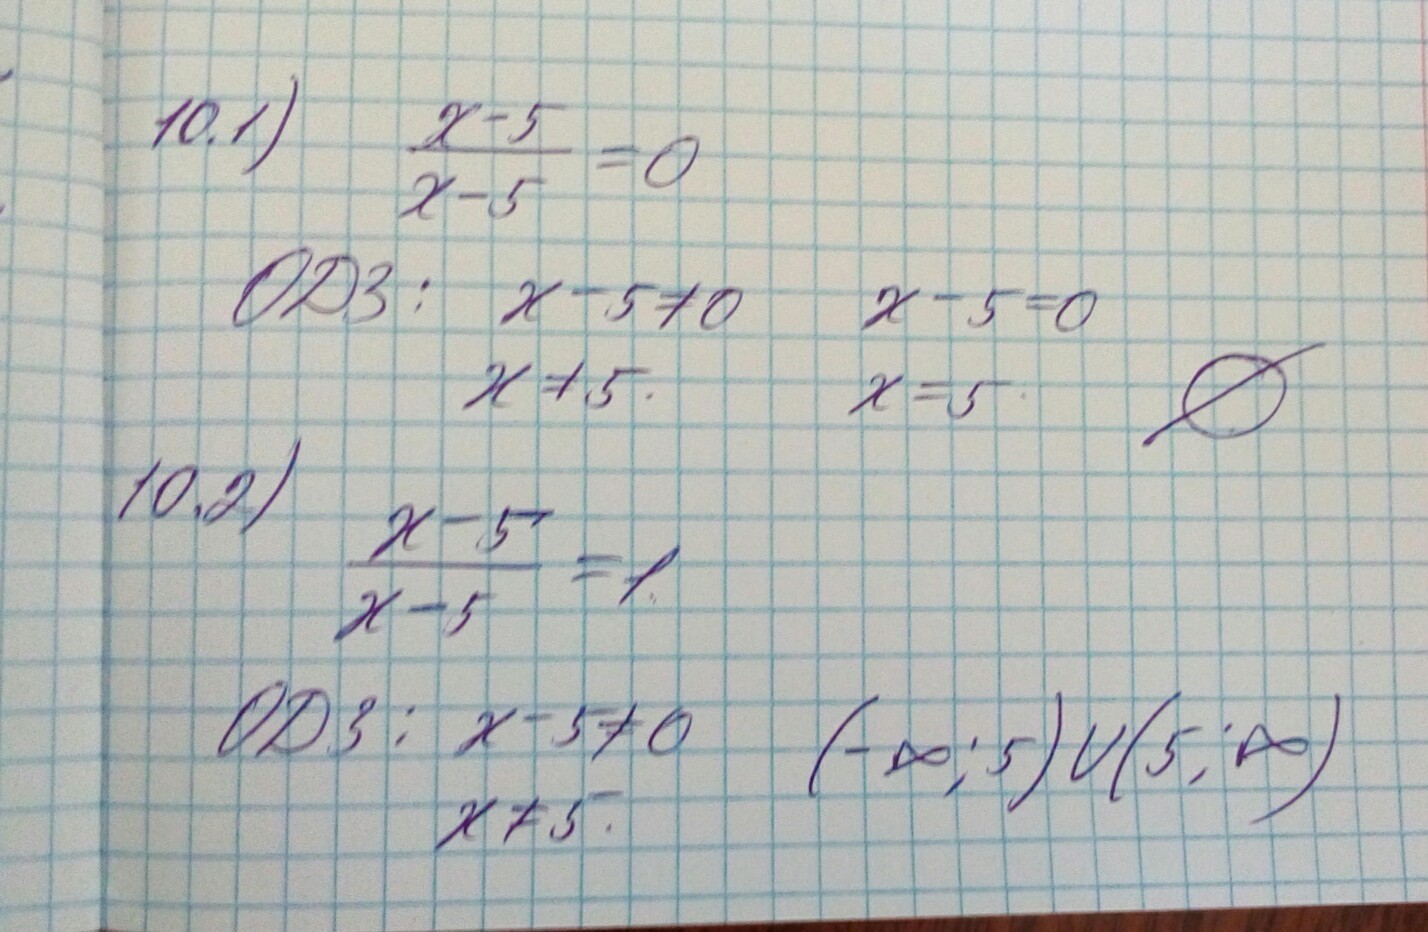 10.1) x-5/x-5 = 0
ОДЗ: x-5≠0 x-5=0
x≠5. x=5. ∅
10.2) x-5/x-5 = 1.
ОДЗ: x-5≠0 (-∞;5)∪(5;∞)
x≠5.